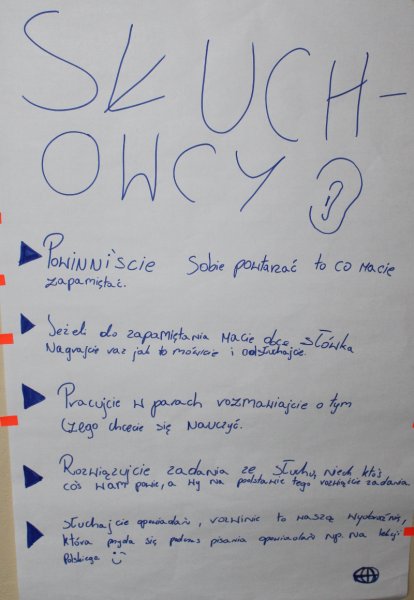 SŁUCH-
OWCY
Powinniście sobie powtarzać to co macie
zapamiętać.
Jeżeli do zapamiętania macie obce słówka
Nagrajcie raz jak to mówicie i odsłuchajcie.
Pracujcie w parach rozmawiajcie o tym
czego chcecie się nauczyć.
Rozwiązujcie zadania ze słuchu, niech ktoś
coś wam powie, a wy na podstawie tego rozwiążcie zadania
słuchajcie opowiadań, rozwinie to waszą wyobraźnię,
która przyda się podczas pisania opowiadań np. na lekcji
Polskiego :)